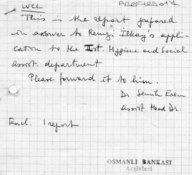 WCC
This is the report prepared
in answer to Remzi Ilkay's appli-
cation to the Hygiene and Social
assist. department
Please forward it to him.
Dr Semih
assist Head Dr.
Encl. 1 report
OSMANLI BANKASI